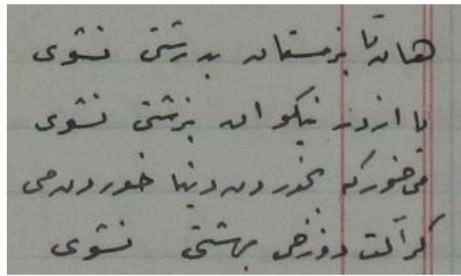 هان تا بر مستان بدرشتی نشوی
یا از در نیکوان بزشتی نشوی
می خور که بخوردن و نیا خوردن می
گر آلت دوزخی بهشتی نشوی